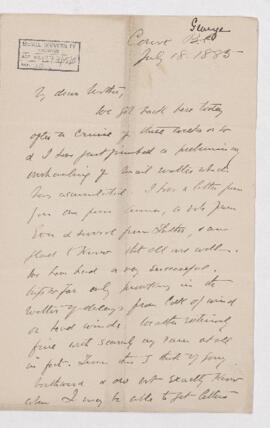 George
Comox B.C.
July 18. 1885
My dear Mother,
We got back here today
after a cruise of three weeks or so
& I have just finished a preliminary
overhauling of mail matter which
has accumulated. I have a letter from
you one from Anna, a note from
Eva & several from father, & am
glad to know that all are well.
We have had a very successful
trip so far only
matter of delays from lack of wind
or head winds. Weather extremely
fine with scarcely any rain at all
in fact. From this I think of going
northward & do not exactly know
when I may be able to get letters